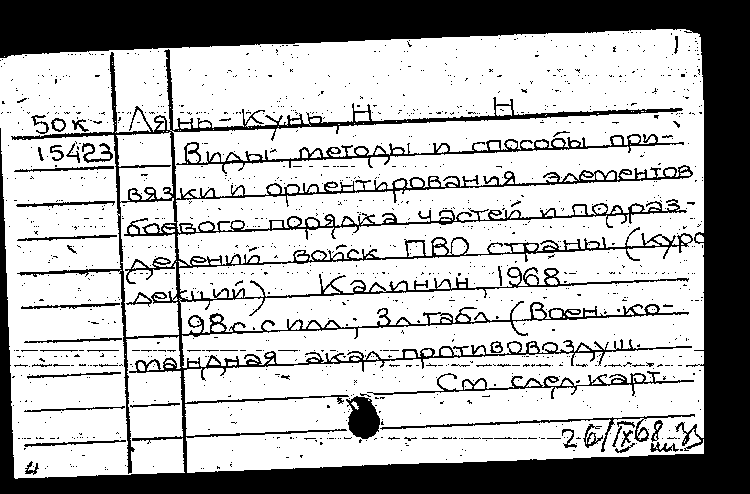 1
50к- Лянь-Кунь, Н Н
15423 Виды, методы и способы при-
вязки и ориентирования элементов
боевого порядка частей и подраз-
делений войск ПВО страны. (Курс
лекций). Калинин, 1968.
98с. с илл.; 3л. табл. (Воен. ко-
мандная акад. противовоздуш.
См. след. карт.
26/IX68
4